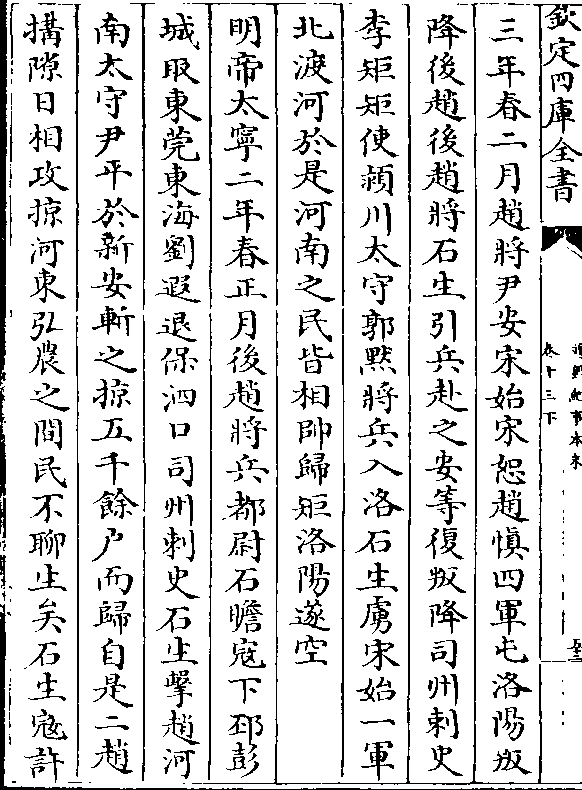 欽定四庫全書
通鑑紀事本末
卷十三下
三年春二月趙將尹安宋始宋恕趙慎四軍屯洛陽叛
降後趙後趙將石生引兵赴之安等復叛降司州刺史
李矩矩使潁川太守郭黙將兵入洛石生虜宋始一軍
北渡河於是河南之民皆相帥歸矩洛陽遂空
明帝太寧二年春正月後趙將兵都尉石瞻寇下邳彭
城取東莞東海劉遐退保泗口司州刺史石生擊趙河
南太守尹平於新安斬之掠五千餘户而歸自是二趙
搆隙日相攻掠河東弘農之間民不聊生矣石生寇許